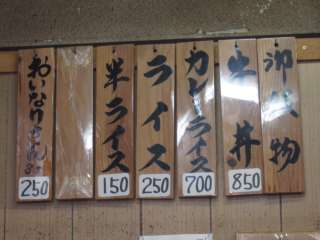 御飯物
牛丼
850
カレーライス
700
ライス
250
半ライス
150
おいなりさん
250